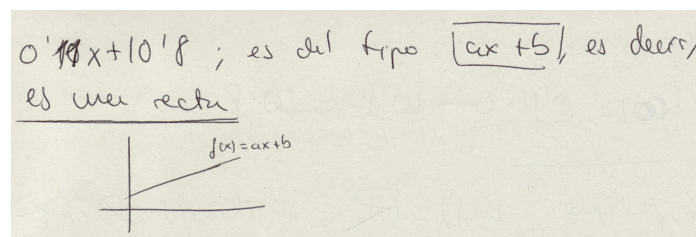 0'11x+10'8 ; es del tipo ax+b, es decir,
es una recta
f(x)=ax+b